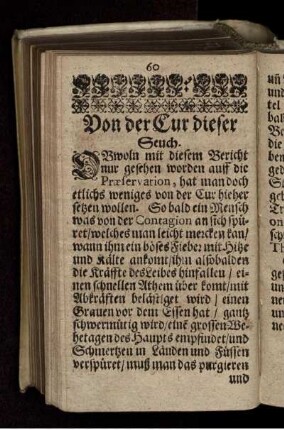 60
Von der Cur dieser
Seuch.
OBwoln mit diesem Bericht
nur gesehen worden auff die
Præservation, hat man doch
etlichs weniges von der Cur hieher
setzen wollen. So bald ein Mensch
was von der Contagion an sich spü-
ret/welches man leicht mercken kan/
wann ihm ein böses Fieber mit Hitze
und Kälte ankomt/ihm alsobalden
die Kräffte des Leibes hinfallen/ ei-
nen schnellen Athem über komt/mit
Abkräften belästiget wird/ einen
Grauen vor dem Essen hat/ gantz
schwermütig wird/eine grossen We-
hetagen des Haupts empfindet/und
Schmertzen in Länden und Füssen
verspüret/ muß man das purgieren
und